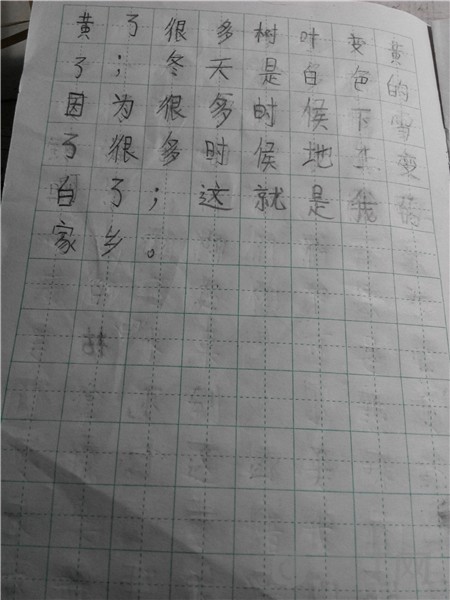 黄了很多树叶变黄
了；冬天是白色的
因为很多时候下雪
了很多时候地变
白了；这就是我
家乡。